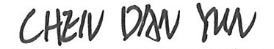 CHEN DAN YUN